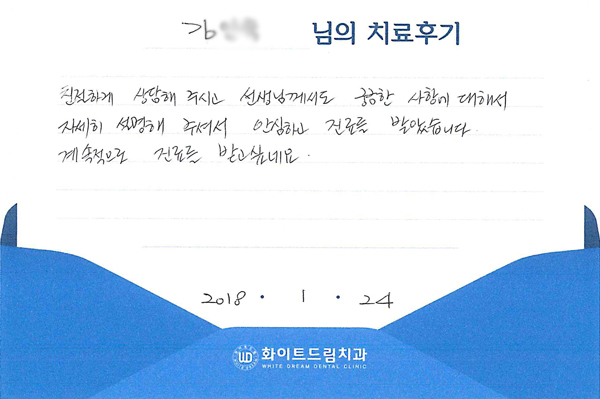 강 님의 치료후기
친절하게 상담해 주시고 선생님께서도 궁금한 사항에 대해서
자세히 설명해 주셔서 안심하고 진료를 받았습니다.
계속적으로 진료를 받고싶네요.
2018 · 1 · 24
WD 화이트드림치과
WHITE DREAM DENTAL CLINIC